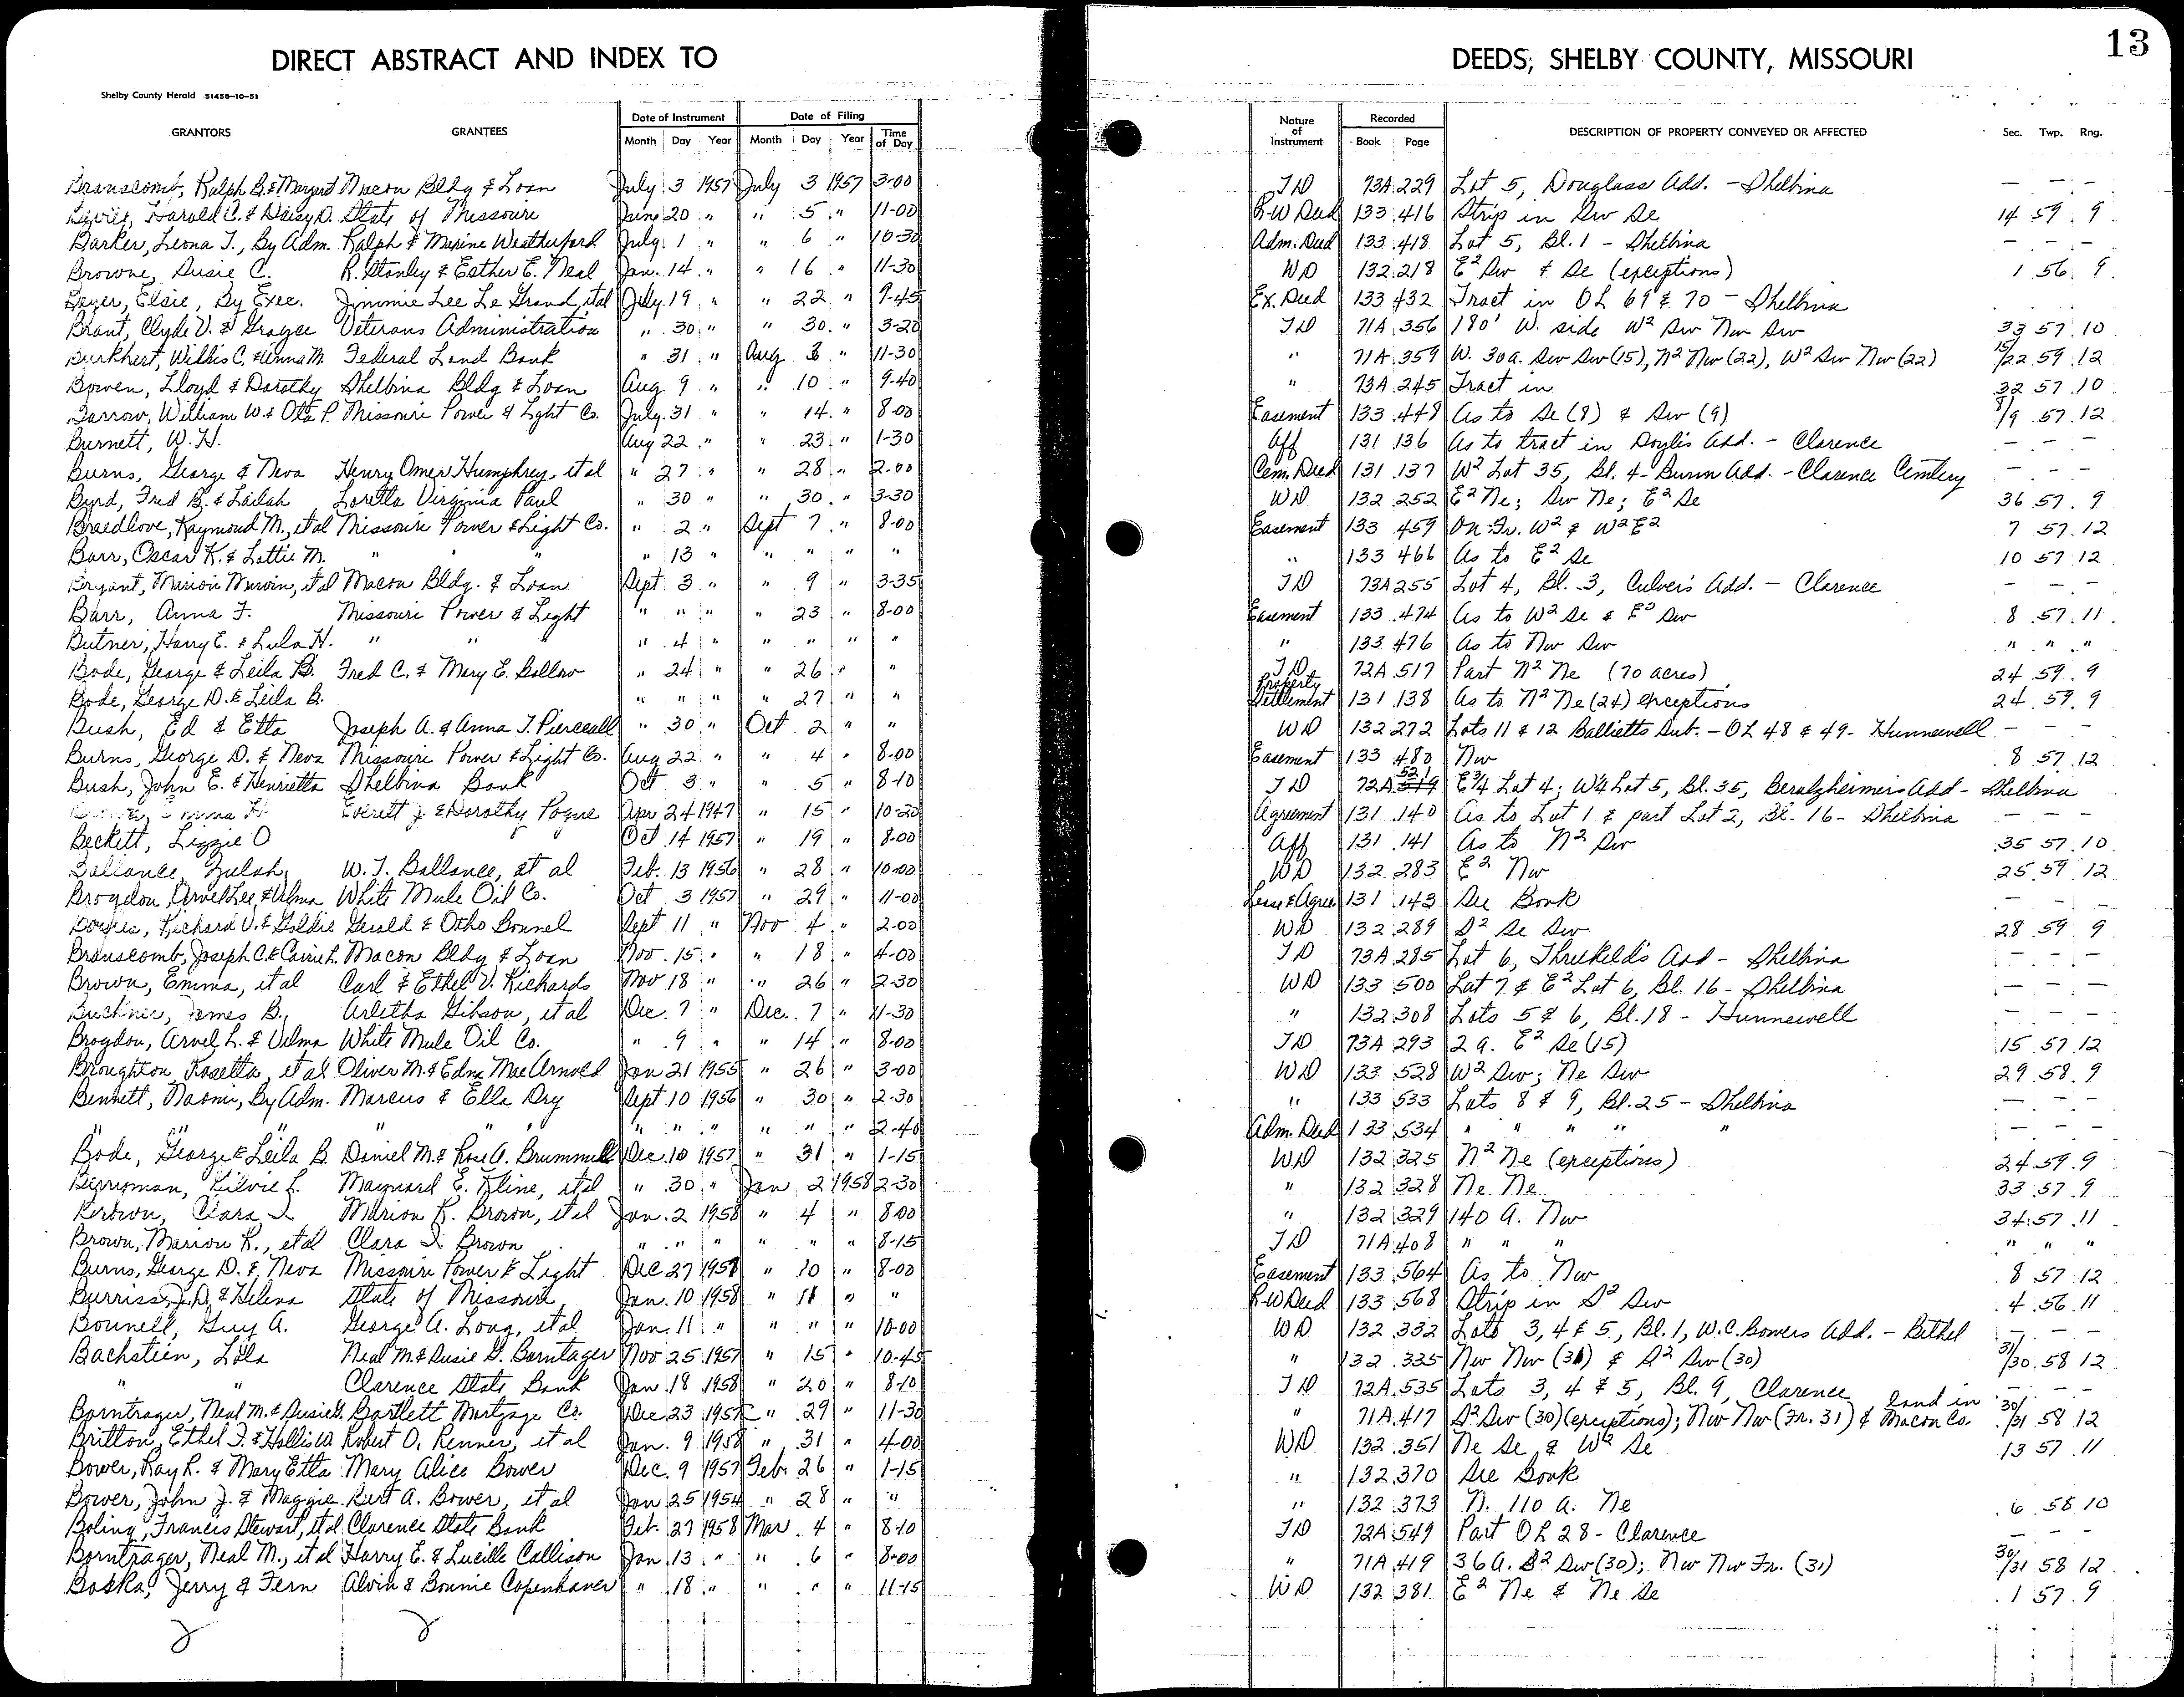 DIRECT ABSTRACT AND INDEX TO
DEEDS, SHELBY COUNTY, MISSOURI
13
Shelby County Herald 51458-10-51
GRANTORS GRANTEES Date of Instrument Month Day Year Date of Filing Month Day Year Time of Day Nature of Instrument Recorded Book Page DESCRIPTION OF PROPERTY CONVEYED OR AFFECTED Sec. Twp. Rng.
Branscomb, Ralph B. & Margaret Macon Bldg & Loan July 3 1957 July 3 1957 3-00 TD 73A 229 Lot 5, Douglass Add. - Shelbina — — —
Harold C. & Daisy D. State of Missouri June 20 " " 5 " 11-00 R-W Deed 133 416 Strip in Sw Se 14 59 9
Barker, Leona T., By Adm. Ralph & Maxine Weatherford July 1 " " 6 " 10-30 Adm. Deed 133 418 Lot 5, Bl. 1 - Shelbina — — —
Browne, Susie C. R. Stanley & Esther E. Neal Jan. 14 " " 16 " 11-30 WD 132 218 E² Sw & Se (exceptions) 1 56 9
Elsie, By Exec. Jimmie Lee Le Grand, et al July 19 " " 22 " 9-45 Ex. Deed 133 432 Tract in OL 69 & 70 - Shelbina
Brant, Clyde V. & Grayce Veterans Administration " 30 " " 30 " 3-20 TD 71A 356 180' W. side W² Sw Nw Sw 33 57 10
Burkhert, Willis C. & Anna M. Federal Land Bank " 31 " Aug 3 " 11-30 " 71A 359 W. 30a. Sw Sw (15), N² Nw (22), W² Sw Nw (22) 15/22 59 12
Bowen, Lloyd & Dorothy Shelbina Bldg & Loan Aug. 9 " " 10 " 9-40 " 73A 245 Tract in 32 57 10
William W. & Ota P. Missouri Power & Light Co. July 31 " " 14 " 8-00 Easement 133 448 As to Se (8) & Sw (9) 8/9 57 12
Burnett, W. H. Aug 22 " " 23 " 1-30 Aff 131 136 As to tract in Doyle's Add. - Clarence — — —
Burns, George & Neva Henry Omer Humphrey, et al " 27 " " 28 " 2-00 Cem. Deed 131 137 W² Lot 35, Bl. 4 - Burnn Add. - Clarence Cemtery — — —
Byrd, Fred B. & Lailah Loretta Virginia Paul " 30 " " 30 " 3-30 WD 132 252 E² Ne; Sw Ne; E² Se 36 57 9
Breedlove, Raymond M., et al Missouri Power & Light Co. " 2 " Sept 7 " 8-00 Easement 133 459 On Fr. W² & W² E² 7 57 12
Barr, Oscar K. & Lottie M. " " " " 13 " " " " " " 133 466 As to E² Se 10 57 12
Bryant, Marion Mervin, et al Macon Bldg. & Loan Sept. 3 " " 9 " 3-35 TD 73A 255 Lot 4, Bl. 3, Culver's Add. - Clarence — — —
Barr, Anna F. Missouri Power & Light " " " " 23 " 8-00 Easement 133 474 As to W² Se & E² Sw 8 57 11
Butner, Harry E. & Lula H. " " " " 4 " " " " " " 133 476 As to Nw Sw " " "
Bode, George & Leila B. Fred C. & Mary E. Bollow " 24 " " 26 " " TD 72A 517 Part N² Ne (70 acres) 24 59 9
Bode, George D. & Leila B. " " " " 27 " " Property Settlement 131 138 As to N² Ne (24) exceptions 24 59 9
Bush, Ed & Etta Joseph A. & Anna T. Pierceall " 30 " Oct 2 " " WD 132 272 Lots 11 & 12 Ballietts Sub. - OL 48 & 49 - Hunnewell — — —
Burns, George D. & Neva Missouri Power & Light Co. Aug 22 " " 4 " 8-00 Easement 133 480 Nw 8 57 12
Bush, John E. & Henrietta Shelbina Bank Oct 3 " " 5 " 8-10 TD 72A 521 519 E¾ Lot 4; W¼ Lot 5, Bl. 35, Beralzheimers Add - Shelbina
Everett J. & Dorothy Pogue Apr 24 1947 " 15 " 10-20 Agreement 131 140 As to Lot 1 & part Lot 2, Bl. 16 - Shelbina — — —
Beckett, Lizzie O Oct 14 1957 " 19 " 8-00 Aff 131 141 As to N² Sw 35 57 10
Ballance, Zulah W. T. Ballance, et al Feb. 13 1956 " 28 " 10-00 WD 132 283 E² Nw 25 59 12
Brogdon, Arvel Lee & Velma White Mule Oil Co. Oct 3 1957 " 29 " 11-00 Lease & Agree 131 143 See Book — — —
Richard V. & Goldie Gerald & Otho Bonnel Sept 11 " Nov 4 " 2-00 WD 132 289 S² Se Sw 28 59 9
Branscomb, Joseph C. & Carrie L. Macon Bldg & Loan Nov. 15 " " 18 " 4-00 TD 73A 285 Lot 6, Threlkeld's Add - Shelbina — — —
Brown, Emma, et al Carl & Ethel V. Richards Nov 18 " " 26 " 2-30 WD 133 500 Lot 7 & E² Lot 6, Bl. 16 - Shelbina — — —
Buckner, James B. Arletha Gibson, et al Dec. 7 " Dec. 7 " 11-30 " 132 308 Lots 5 & 6, Bl. 18 - Hunnewell — — —
Brogdon, Arvel L. & Velma White Mule Oil Co. " 9 " " 14 " 8-00 TD 73A 293 2 a. E² Se (15) 15 57 12
Broughton, Rosetta, et al Oliver M. & Edna Mae Arnold Jan 21 1955 " 26 " 3-00 WD 133 528 W² Sw; Ne Sw 29 58 9
Bennett, Naomi, By Adm. Marcus & Ella Dry Sept 10 1956 " 30 " 2-30 " 133 533 Lots 8 & 9, Bl. 25 - Shelbina — — —
" " " " " " " " " " " 2-40 Adm. Deed 133 534 " " " " " — — —
Bode, George & Leila B. Daniel M. & Rose A. Brummell Dec 10 1957 " 31 " 1-15 WD 132 325 N² Ne (exceptions) 24 59 9
Berryman, Lilvie L. Maynard E. Kline, et al " 30 " Jan 2 1958 2-30 " 132 328 Ne Ne 33 57 9
Brown, Clara I. Marion K. Brown, et al Jan. 2 1958 " 4 " 8-00 " 132 329 140 a. Nw 34 57 11
Brown, Marion K., et al Clara I. Brown " " " " " " 8-15 TD 71A 408 " " " " " "
Burns, George D. & Neva Missouri Power & Light Dec 27 1957 " 10 " 8-00 Easement 133 564 As to Nw 8 57 12
Burriss, J. D. & Helena State of Missouri Jan. 10 1958 " 11 " " R-W Deed 133 568 Strip in S² Sw 4 56 11
Bonnell, Guy A. George A. Long, et al Jan. 11 " " " " 10-00 WD 132 332 Lots 3, 4 & 5, Bl. 1, W. C. Bowers Add. - Bethel — — —
Bachstein, Lola Neal M. & Susie G. Borntager Nov 25 1957 " 15 " 10-45 " 132 335 Nw Nw (31) & S² Sw (30) 31/30 58 12
" " Clarence State Bank Jan 18 1958 " 20 " 8-10 TD 72A 535 Lots 3, 4 & 5, Bl. 9, Clarence — — —
Borntrager, Neal M. & Susie G. Bartlett Mortgage Co. Dec 23 1957 " 29 " 11-30 " 71A 417 S² Sw (30) (exceptions); Nw Nw (Fr. 31) & land in Macon Co. 30/31 58 12
Britton, Ethel I. & Hollis W. Robert O. Renner, et al Jan. 9 1958 " 31 " 4-00 WD 132 351 Ne Se & W² Se 13 57 11
Bower, Ray R. & Mary Etta Mary Alice Bower Dec. 9 1957 Feb. 26 " 1-15 " 132 370 See Book
Bower, John J. & Maggie Bert A. Bower, et al Jan 25 1954 " 28 " " " 132 373 N. 110 a. Ne 6 58 10
Boling, Francis Stewart, et al Clarence State Bank Feb. 27 1958 Mar 4 " 8-10 TD 72A 549 Part OL 28 - Clarence — — —
Borntrager, Neal M., et al Harry E. & Lucille Callison Jan 13 " " 6 " 8-00 " 71A 419 36 a. S² Sw (30); Nw Nw Fr. (31) 30/31 58 12
Boska, Jerry & Fern Alvin & Bonnie Copenhaver " 18 " " " " 11-15 WD 132 381 E² Ne & Ne Se 1 57 9